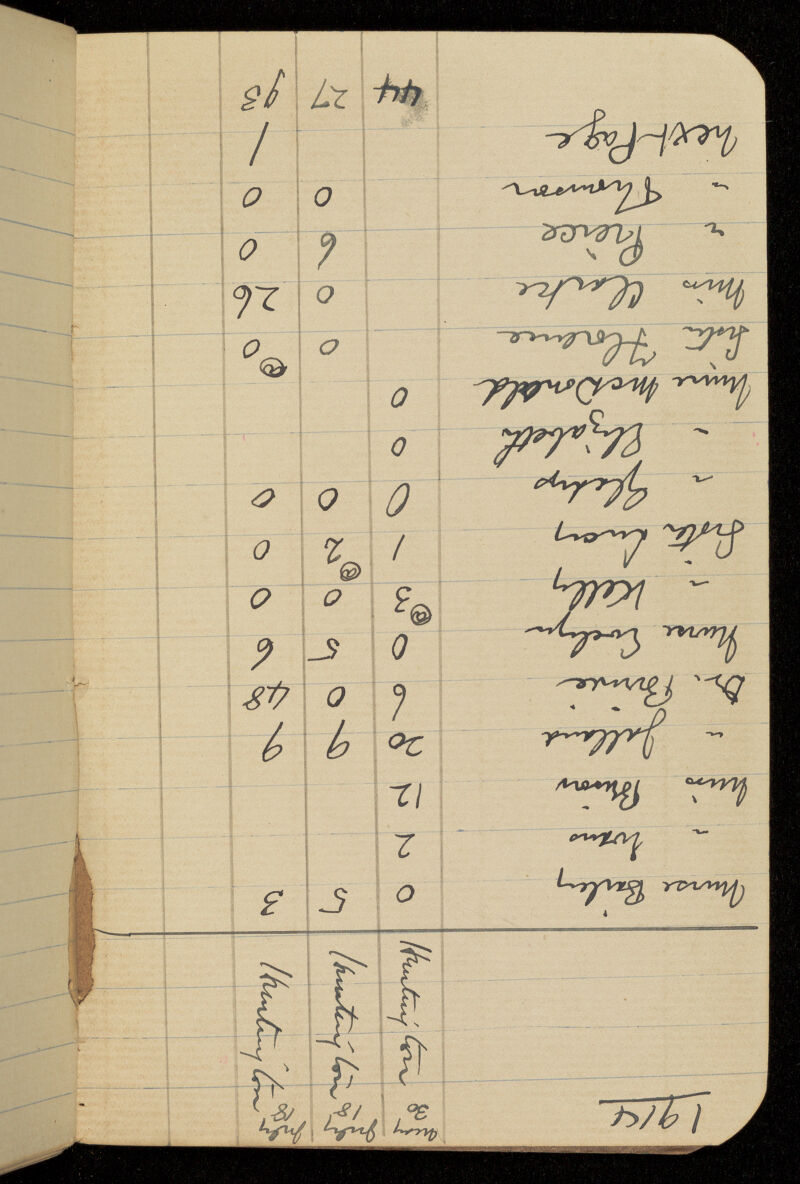 1914
May 30 Huntington July 18 Huntington July 18 Huntington
Nurse Bailey 0 5 3
" Evans 2
Miss Brison 12
" Jalland 20 9 9
Dr. 6 0 48
Nurse Evelyn 0 5 6
" Kelly 3 @ 0 0
Sister Lucy 1 2 @ 0
" Gladys 0 0 0
" Elizabeth 0
Nurse McDonald 0
Sister Florence 0 0 @
Miss Clarke 0 26
" Preice 6 0
" Thomson 0 0
next Page 1
44 27 93